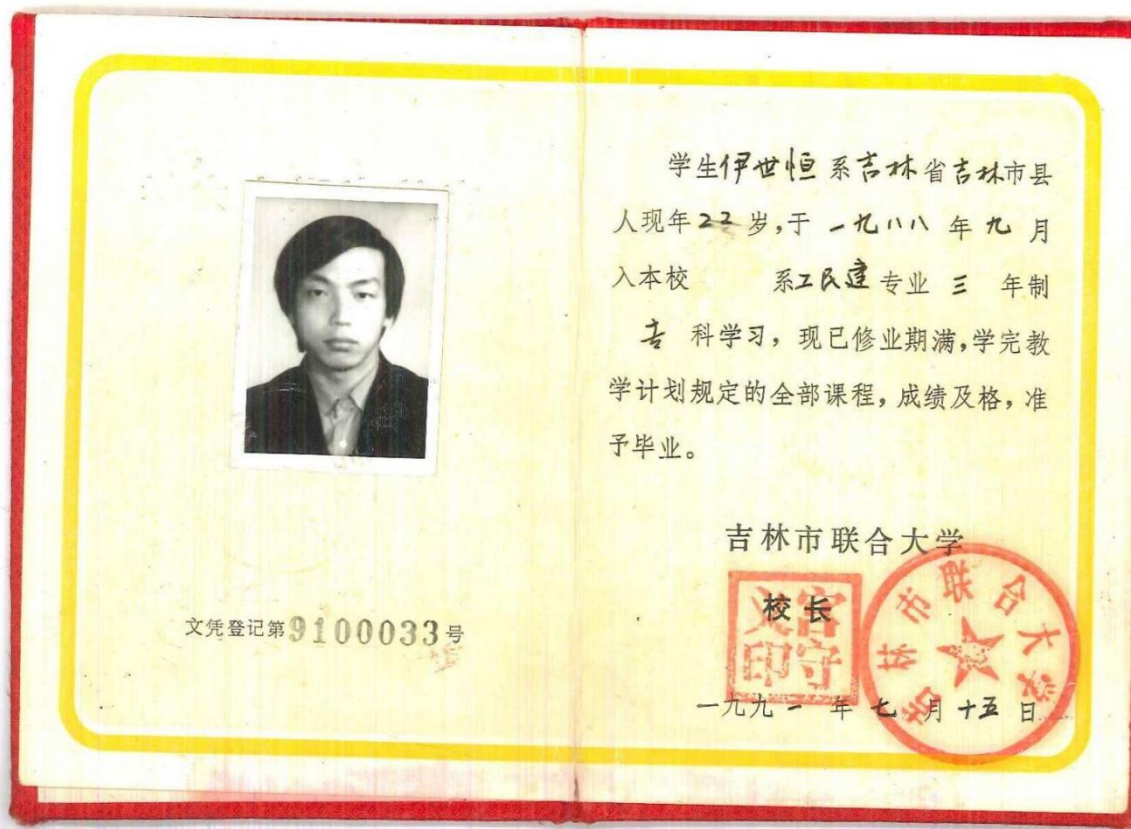 文凭登记第9100033号
学生伊世恒系吉林省吉林市县
人现年22岁,于一九八八年九月
入本校 系工民建专业三年制
专科学习,现已修业期满,学完教
学计划规定的全部课程,成绩及格,准
予毕业。
吉林市联合大学
校长
宫守义印
吉林市联合大学
一九九一年七月十五日